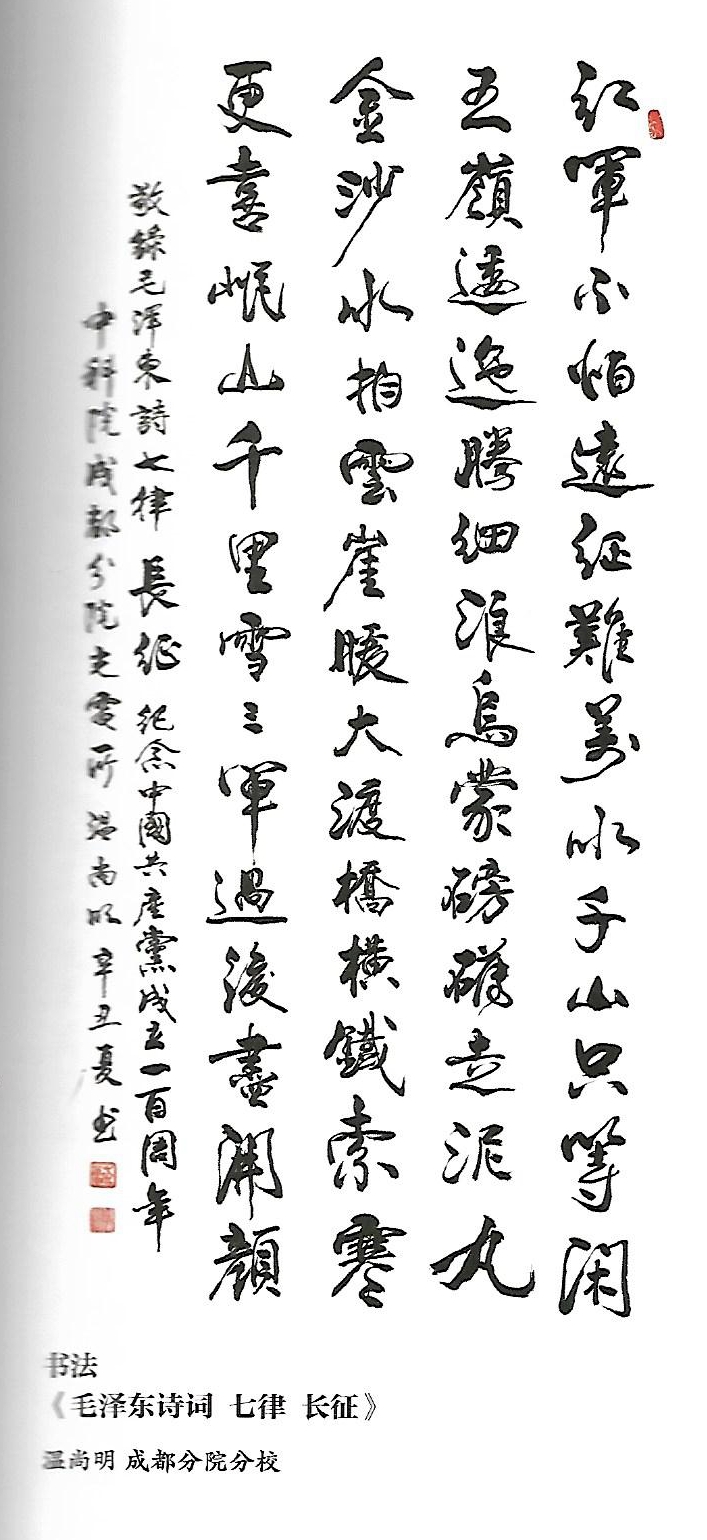 红軍不怕遠征難萬水千山只等闲
五嶺逶迤腾细浪烏蒙磅礴走泥丸
金沙水拍雲崖暖大渡橋横鐵索寒
更喜岷山千里雪三軍過後盡開顔
敬錄毛泽東詩七律 長征 纪念中國共産黨成立一百周年
中科院成都分院光電所 温尚明 辛丑夏书
书法
《毛泽东诗词 七律 长征》
温尚明 成都分院分校